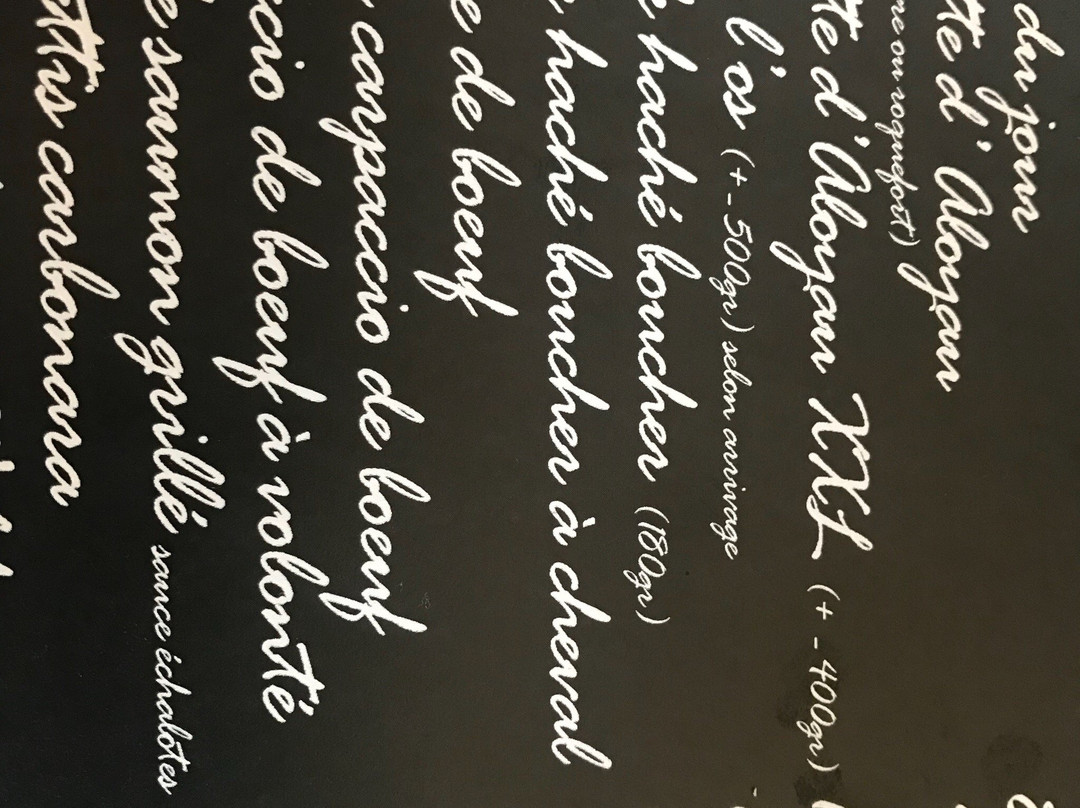 du jour
d'Aloyau
ou roquefort)
d'Aloyau XXL (+ - 400gr)
l'os (+ - 500gr) selon arrivage
haché boucher (180gr)
haché boucher à cheval
de boeuf
carpaccio de boeuf
de boeuf à volonté
saumon grillé sauce échalotes
carbonara